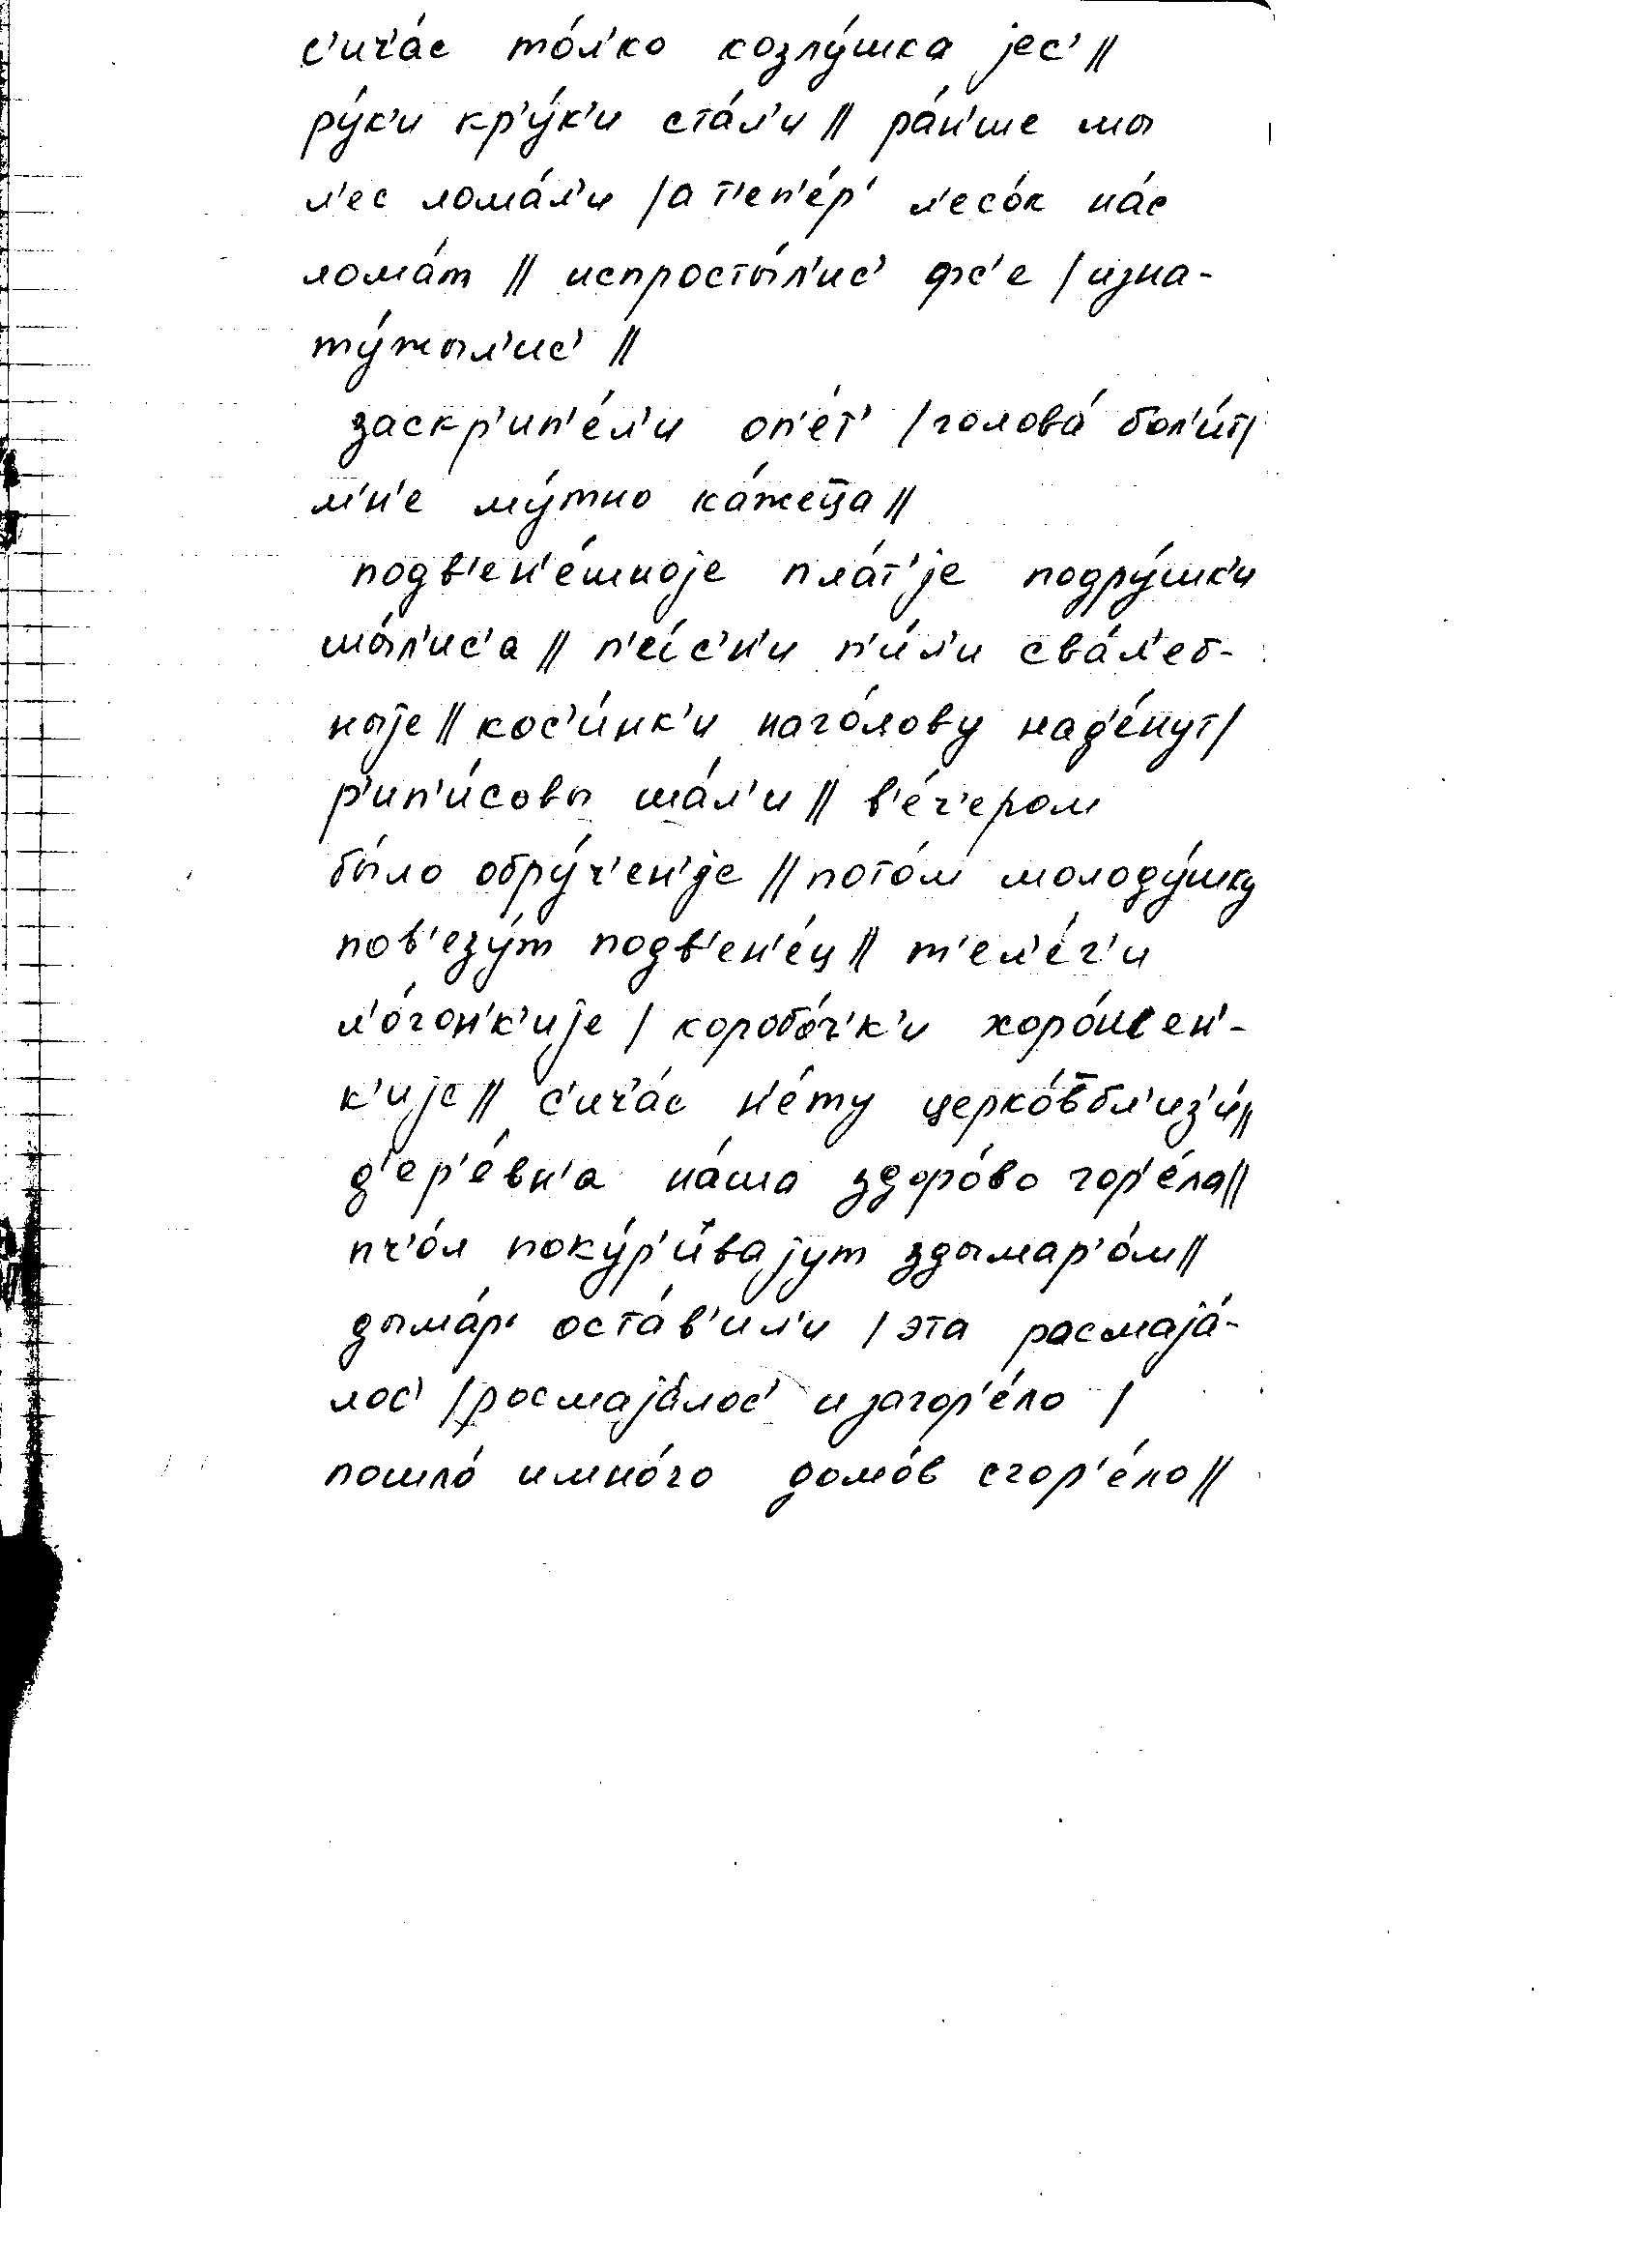 с'ич'а́с то́л'ко козлу́шка јес' //
ру́к'и кр'у́к'и ста́л'и // ра́н'ше мы
л'ес лома́л'и / а т'еп'е́р' л'есо́к на́с
лома́т // испросты́л'ис' фс'е / изна-
ту́жыл'ис' //
заскр'ип'е́л'и оп'е́т' / голова́ бол'и́т /
м'н'е му́тно ка́жец̄а //
подв'ен'е́шноје пла́т'је подру́шк'и
шы́л'ис'а // п'е́с'н'и п'и́л'и сва́л'еб-
ныје // кос'и́нк'и наго́лову над'е́нут /
р'ип'и́совы ша́л'и // в'е́ч'ером
бы́ло обру́ч'ен'је // пото́м молоду́шку
пов'езу́т подв'ен'е́ц // т'ел'е́г'и
л'о́гон'к'ије / коробо́ч'к'и хоро́шен'-
к'ије // с'ич'а́с н'е́ту церко́в̄бл'из'и́ //
д'ер'е́вн'а на́ша здоро́во гор'е́ла //
пч'о́л поку́р'ивајут здымар'о́м //
дыма́р' оста́в'ил'и / эта расмаја́-
лос' / росмаја́лос' изагор'е́ло /
пошло́ имно́го домо́в сгор'е́ло //